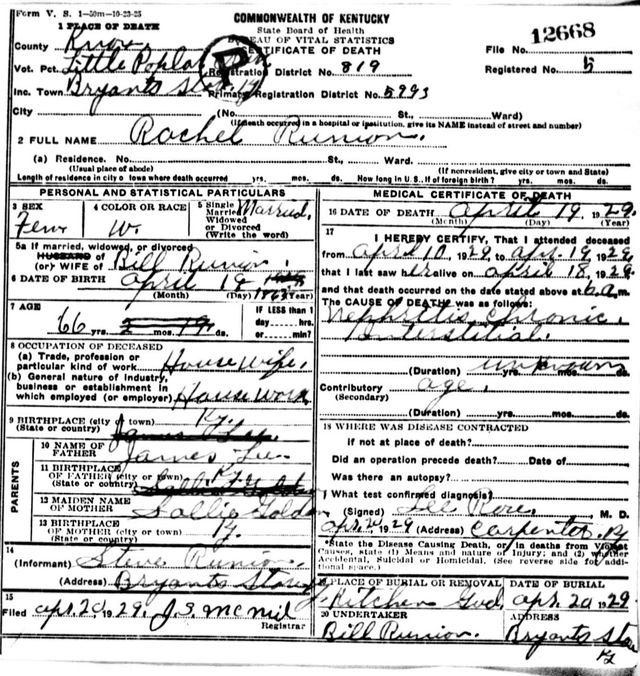 Form V. S. 1-50m-10-23-25
COMMONWEALTH OF KENTUCKY
State Board of Health
BUREAU OF VITAL STATISTICS
CERTIFICATE OF DEATH
1 PLACE OF DEATH
County Knox
File No. 12668
Vot. Pct. Little Poplar
P
Registration District No. 819
Registered No. 5
Inc. Town Bryants Store Ky
Primary Registration District No. 5993
City (No. St., Ward)
(If death occurred in a hospital or institution, give its NAME instead of street and number)
2 FULL NAME Rachel Runion.
(a) Residence. No. St., Ward.
(Usual place of abode) (If nonresident, give city or town and State)
Length of residence in city or town where death occurred yrs. mos. ds. How long in U. S., if of foreign birth? yrs. mos. ds.
PERSONAL AND STATISTICAL PARTICULARS
3 SEX Fem
4 COLOR OR RACE W.
5 Single Married Widowed or Divorced (Write the word) Married.
5a If married, widowed, or divorced
HUSBAND of
(or) WIFE of Bill Runion.
6 DATE OF BIRTH April 1863
(Month) (Day) (Year)
7 AGE 66 yrs. mos. ds.
IF LESS than 1 day, hrs. or min.?
8 OCCUPATION OF DECEASED
(a) Trade, profession or particular kind of work House wife.
(b) General nature of industry, business or establishment in which employed (or employer) House work
9 BIRTHPLACE (city or town) Ky.
(State or country)
PARENTS
10 NAME OF FATHER James Lee
11 BIRTHPLACE OF FATHER (city or town) Ky.
(State or country)
12 MAIDEN NAME OF MOTHER Sallie Golden
13 BIRTHPLACE OF MOTHER (city or town) Ky.
(State or country)
14
(Informant) Steve Runion.
(Address) Bryants Store Ky
15
Filed Apr. 20 1929. J. S. McMil
Registrar
MEDICAL CERTIFICATE OF DEATH
16 DATE OF DEATH April 19, 1929.
(Month) (Day) (Year)
17
I HEREBY CERTIFY, That I attended deceased
from April 10, 1929 to Apr. 19, 1929,
that I last saw her alive on April 18, 1929
and that death occurred on the date stated above at 6 a.m.
The CAUSE OF DEATH was as follows:
Nephritis Chronic.
Interstitial.
(Duration) unknown yrs. mos. ds.
Contributory age.
(Secondary)
(Duration) yrs. mos. ds.
18 WHERE WAS DISEASE CONTRACTED
if not at place of death?
Did an operation precede death? Date of
Was there an autopsy?
What test confirmed diagnosis?
(Signed) M. D.
Apr. 1929 (Address) Carpenter, Ky
*State the Disease Causing Death, or in deaths from Violent Causes, state (1) Means and nature of Injury; and (2) whether Accidental, Suicidal or Homicidal. (See reverse side for additional space.)
19 PLACE OF BURIAL OR REMOVAL
DATE OF BURIAL
Kitchen Gvd. Apr. 20 1929.
20 UNDERTAKER
ADDRESS
Bill Runion. Bryants Store
Ky